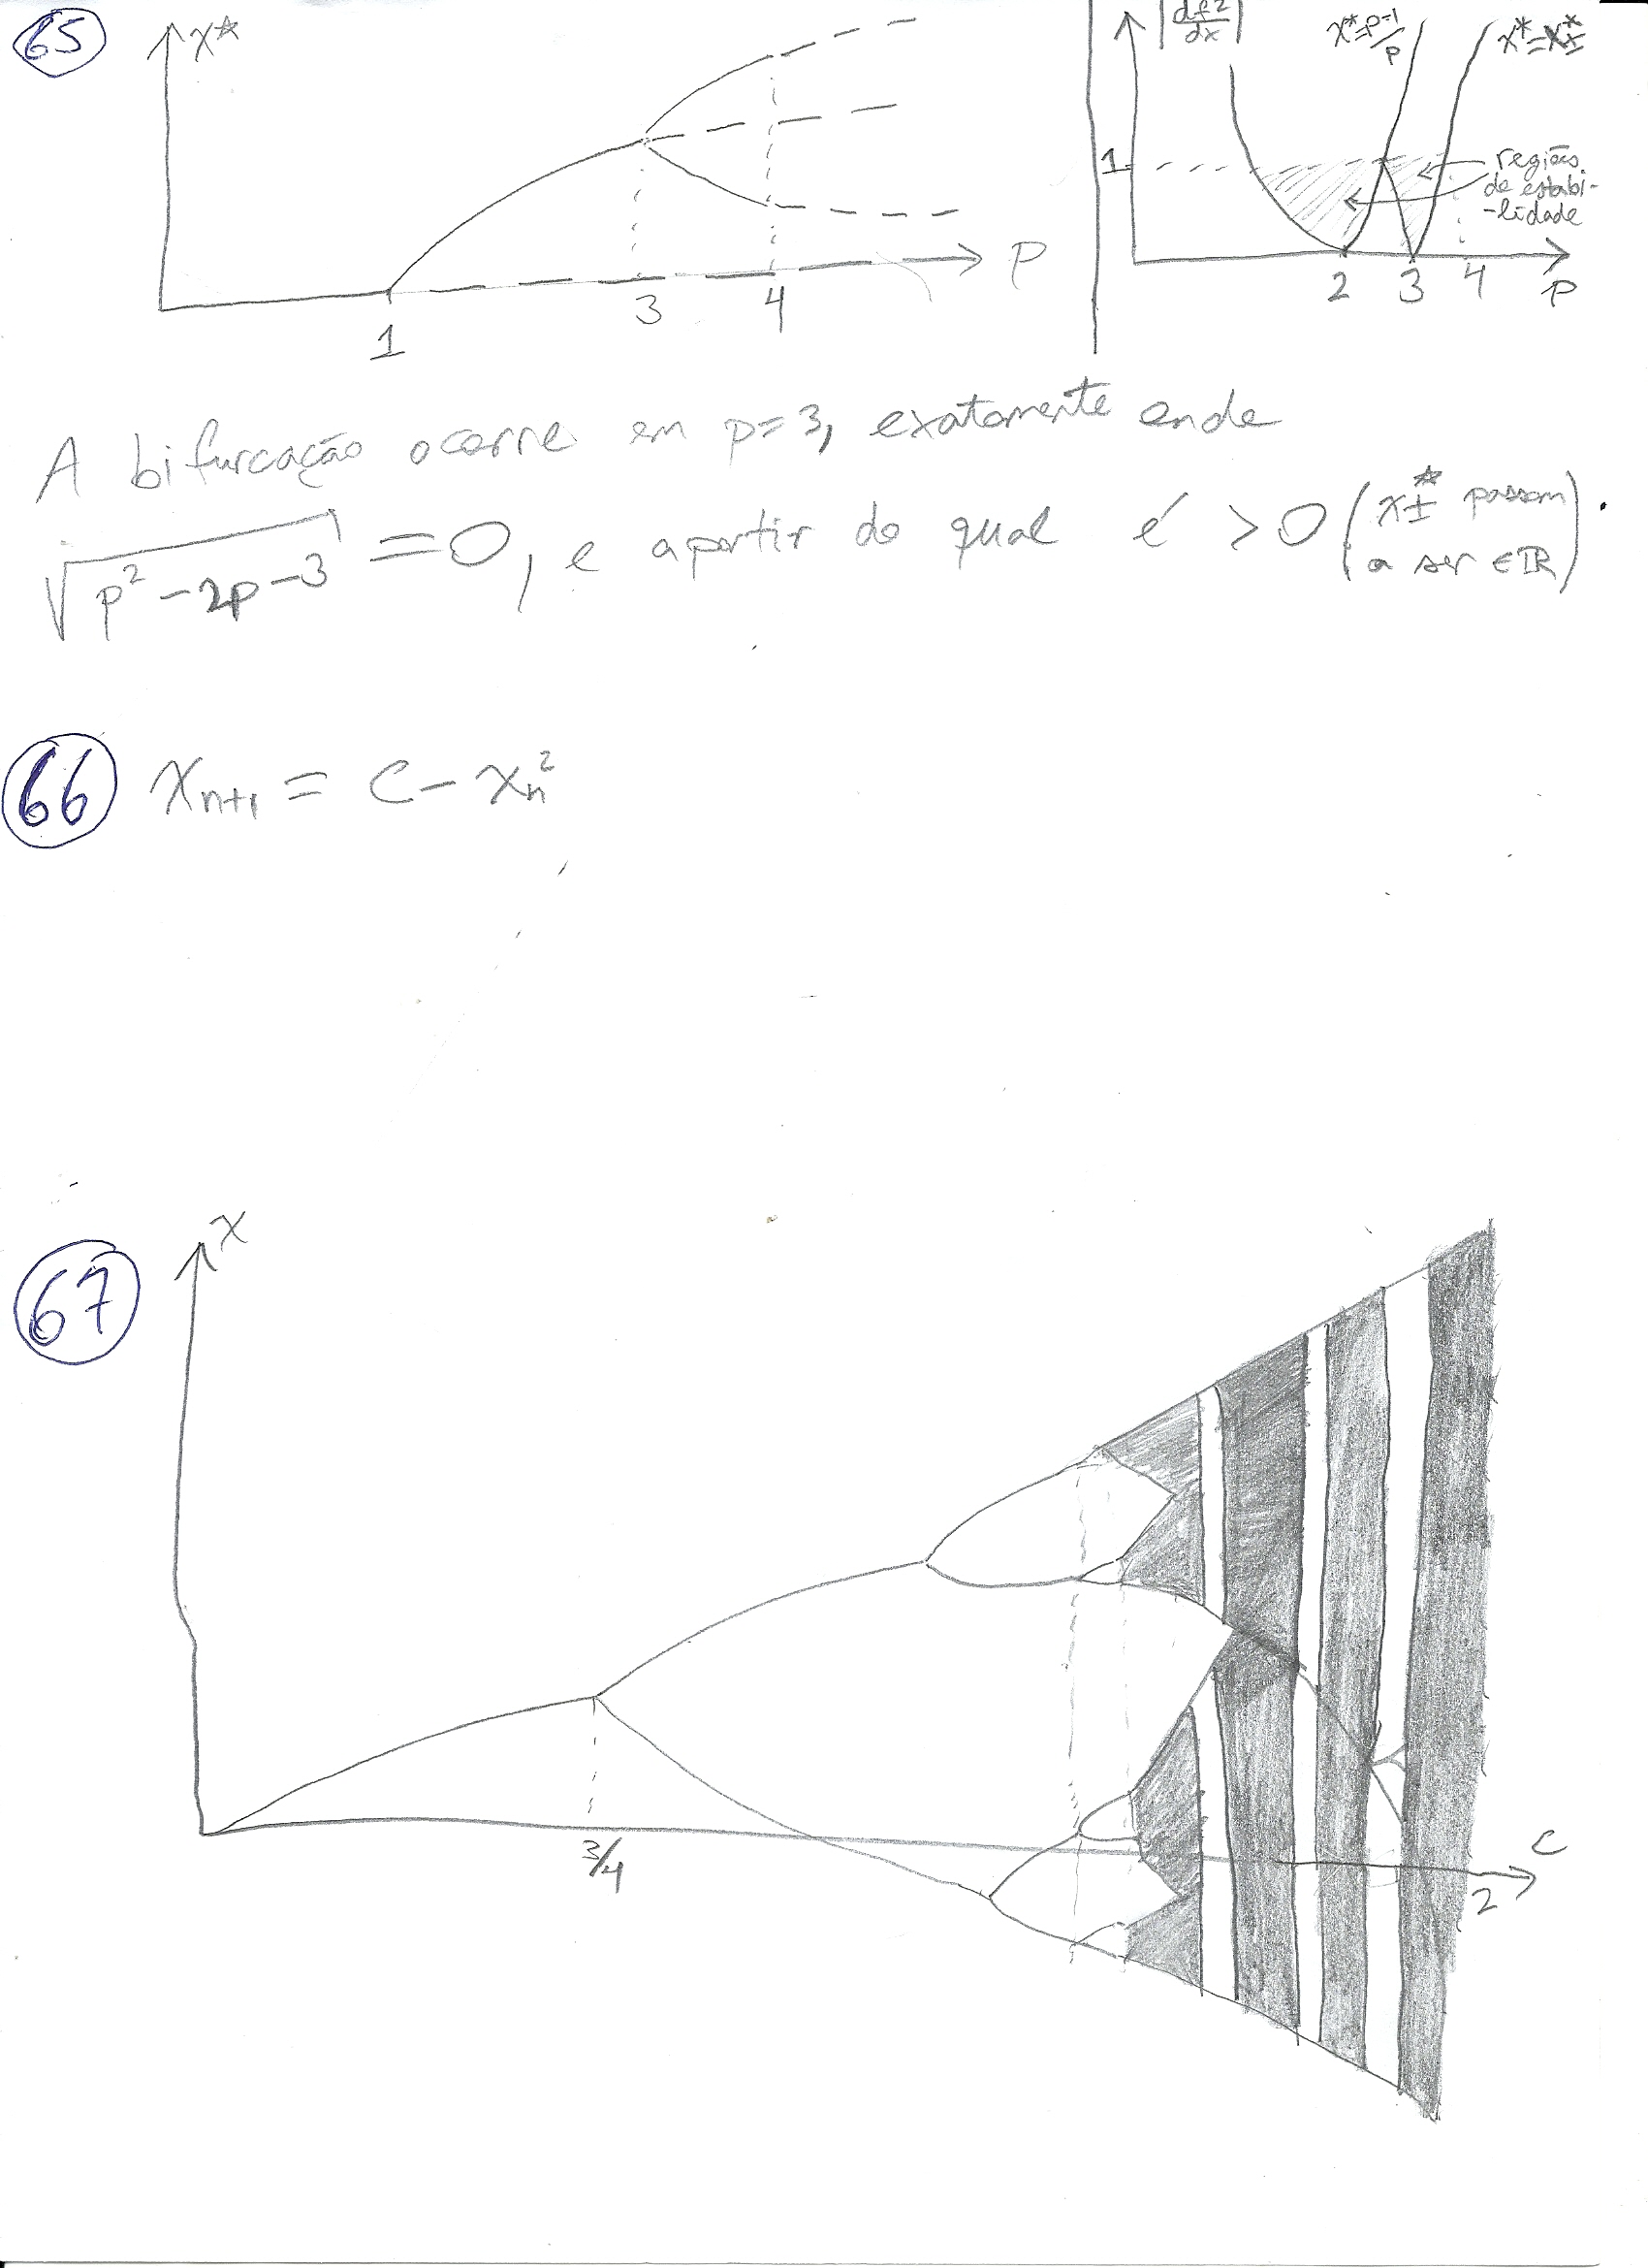 65
x* |df²/dx| x*=p-1/p x*=x*±
1 regiões
de estabi-
-lidade
1 3 4 p 2 3 4 p
A bifurcação ocorre em p=3, exatamente onde
√p²-2p-3 = 0, e a partir do qual é > 0 (x±* passam
a ser ∈ ℝ).
66 xn+1 = c - xn²
67 x
3/4 2 c